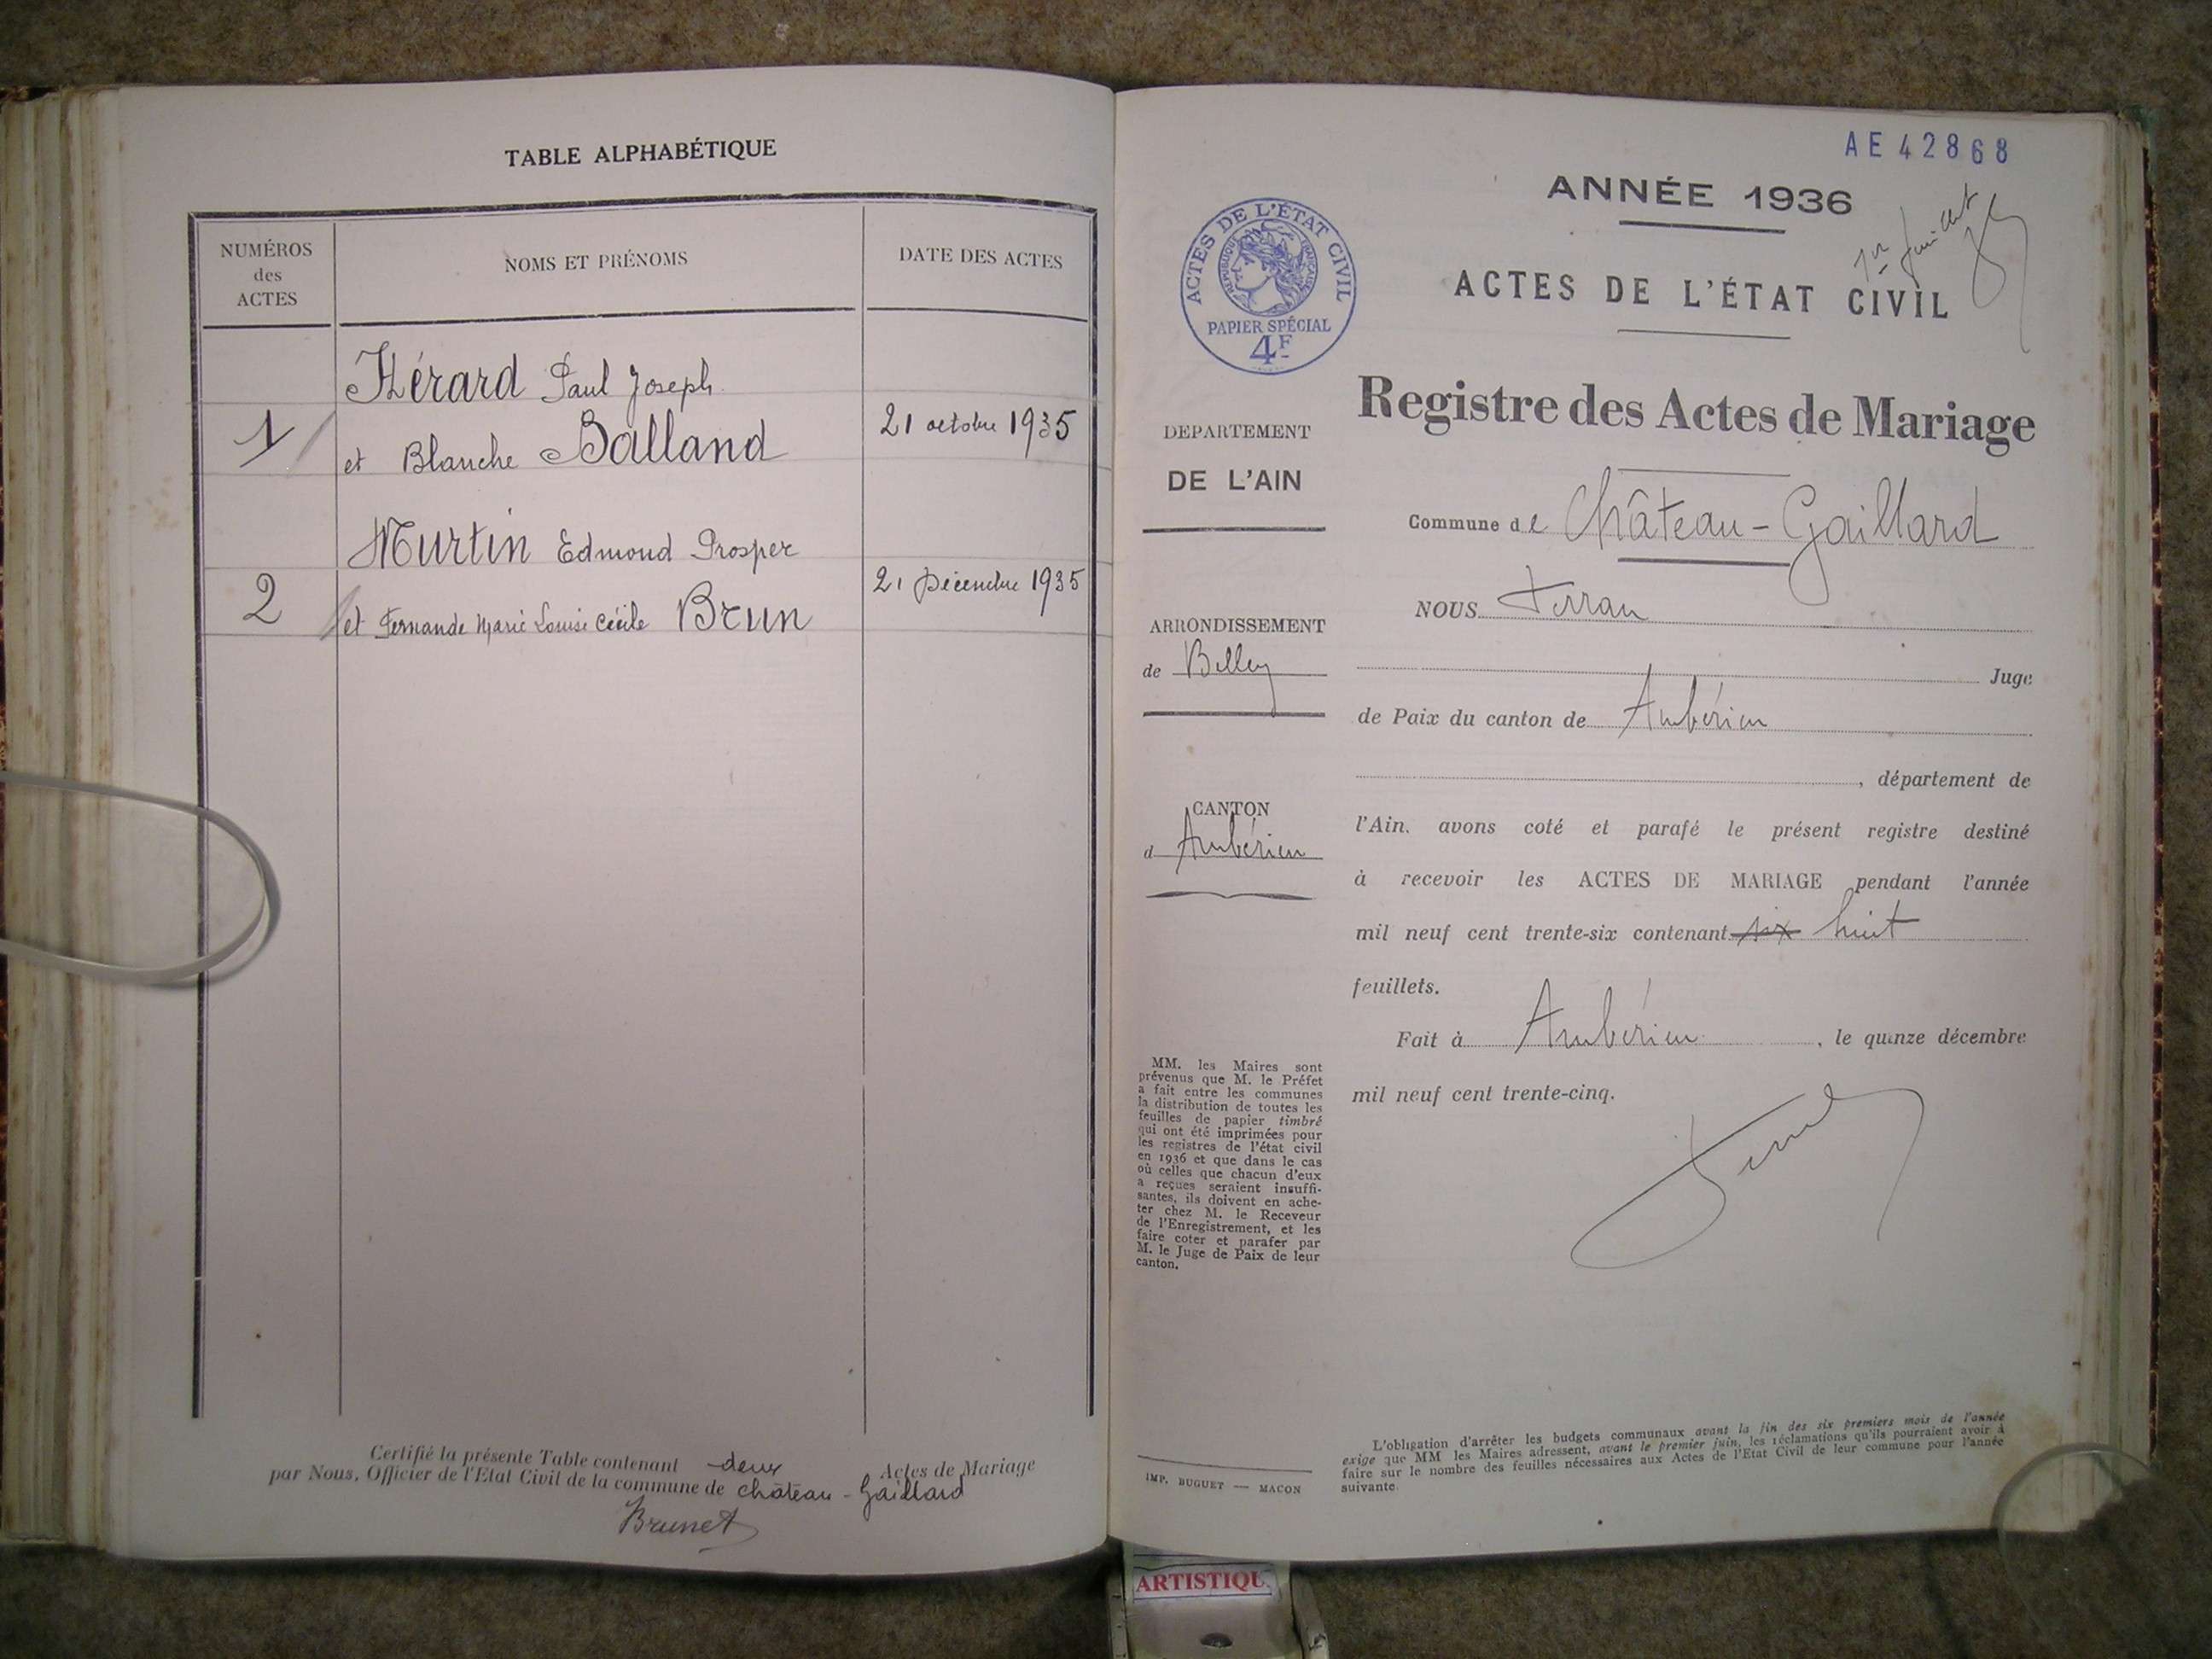 TABLE ALPHABÉTIQUE
NUMÉROS
des
ACTES
NOMS ET PRÉNOMS
DATE DES ACTES
Hérard Paul Joseph
1
et Blanche Balland
21 octobre 1935
Murtin Edmond Prosper
2
et Fernande Marie Louise Cécile Brun
21 Décembre 1935
Certifié la présente Table contenant deux Actes de Mariage
par Nous, Officier de l'Etat Civil de la commune de château-Gaillard
Brunet
AE 42868
ANNÉE 1936
1er feuillet
ACTES DE L'ÉTAT CIVIL
RÉPUBLIQUE FRANÇAISE
PAPIER SPÉCIAL
4F
ACTES DE L'ÉTAT CIVIL
Registre des Actes de Mariage
DEPARTEMENT
DE L'AIN
Commune de Château-Gaillard
NOUS
ARRONDISSEMENT
de Belley
Juge
de Paix du canton de Ambérieu
, département de
CANTON
d Ambérieu
l'Ain. avons coté et parafé le présent registre destiné
à recevoir les ACTES DE MARIAGE pendant l'année
mil neuf cent trente-six contenant six huit
feuillets.
Fait à Ambérieu, le quinze décembre
mil neuf cent trente-cinq.
MM. les Maires sont
prévenus que M. le Préfet
a fait entre les communes
la distribution de toutes les
feuilles de papier timbré
qui ont été imprimées pour
les registres de l'état civil
en 1936 et que dans le cas
où celles que chacun d'eux
a reçues seraient insuffi-
santes, ils doivent en ache-
ter chez M. le Receveur
de l'Enregistrement, et les
faire coter et parafer par
M. le Juge de Paix de leur
canton.
IMP. BUGUET — MACON
L'obligation d'arrêter les budgets communaux avant la fin des six premiers mois de l'année
exige que MM les Maires adressent, avant le premier juin, les réclamations qu'ils pourraient avoir à
faire sur le nombre des feuilles nécessaires aux Actes de l'Etat Civil de leur commune pour l'année
suivante.
ARTISTIQU